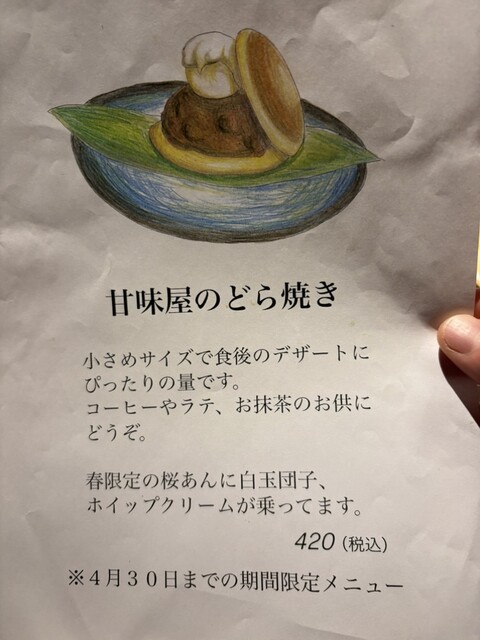 甘味屋のどら焼き
小さめサイズで食後のデザートに
ぴったりの量です。
コーヒーやラテ、お抹茶のお供に
どうぞ。
春限定の桜あんに白玉団子、
ホイップクリームが乗ってます。
420（税込）
※４月３０日までの期間限定メニュー